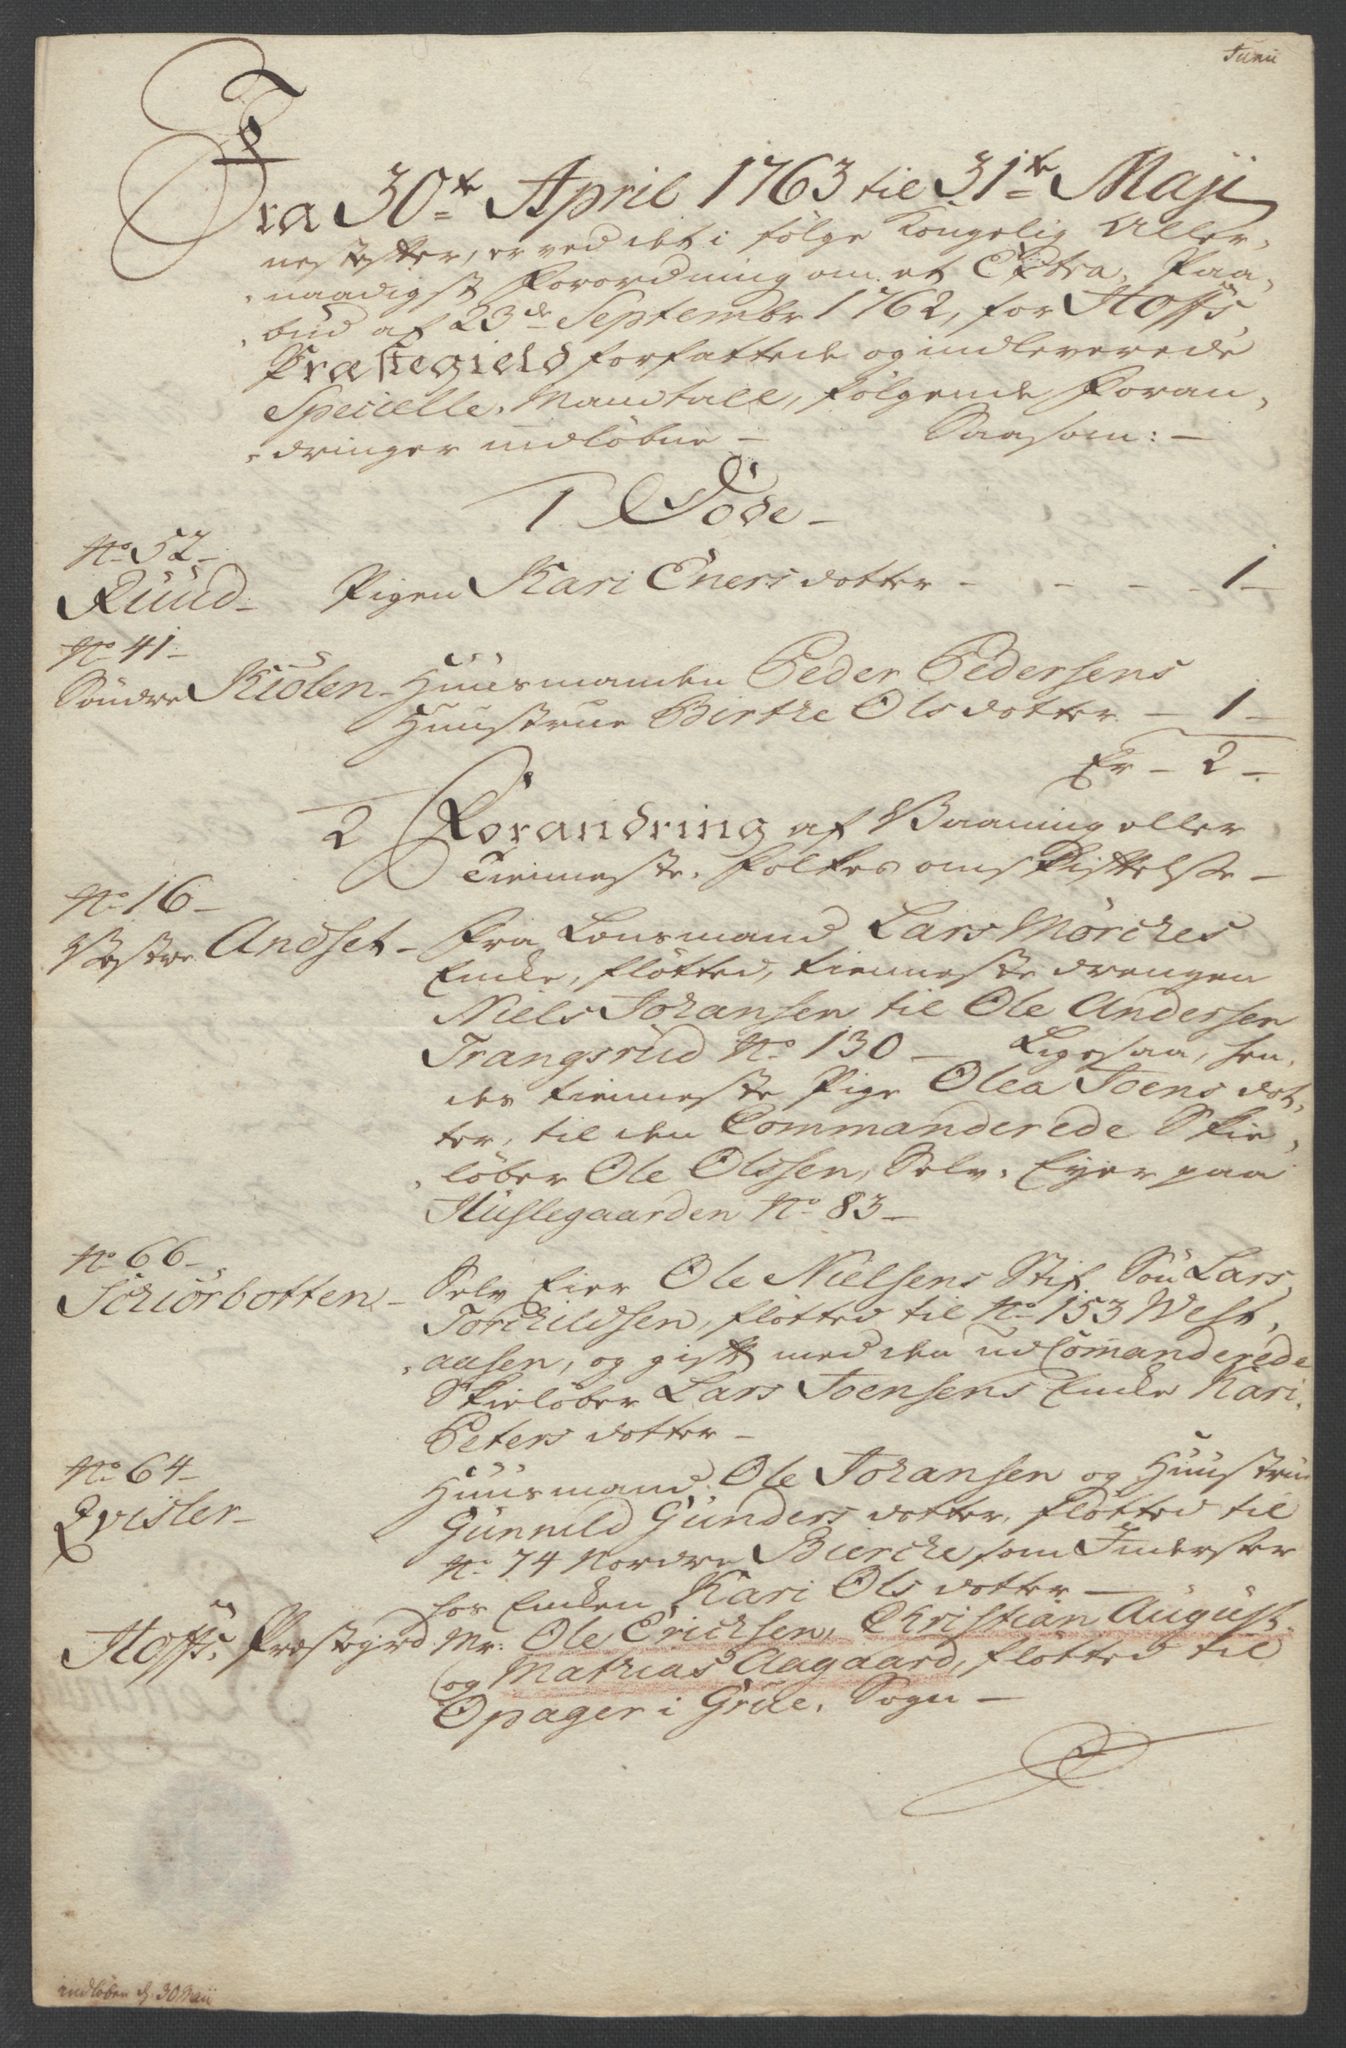 Junii
Fra 30te April 1763 til 31te Maji
nestefter, er ved det i følge Kongelig Aller,
naadigst Forordning om et Extra, Paa,
bud af 23de Septembr 1762, for Hoffs
Præstegield forfattede og indleverede
Specielle, Mandtall, følgende Foran,
dringer indløbne – Saasom: –
1 Døde –
No 52 –
Ruud – Pigen Kari Eners dotter - - - - 1 –
No 41 –
Søndre Kiølen – Huusmanden Peder Pedersens
Huustrue Birthe Ols dotter – 1 –
Er – 2 –
2 Forandring af Vaaning eller
Tienneste, Folkes omskiftelse –
No 16 –
Vestre Andset – Fra Lensmand Lars Mørches
Enke, fløtted, tienneste drengen
Niels Johansen til Ole Andersen
Trangsrud No 130 – Ligesaa, hen,
des tienneste Pige Olea Joens dot,
ter, til den Commanderede Skie,
løber Ole Olssen, Selv, Eyer paa
Huslegaarden No 83 –
No 66 –
Schiørbotten – Selv Eier Ole Nielsens Stif, Søn Lars
Torchildsen, fløtted til No 153 West,
aasen, og gift med den udComanderede
Skieløber Lars Joensens Enke Kari
Peters dotter –
No 64 –
Qvisler – Huusmand Ole Johansen og Huustrue
Gunnild Gunders dotter, fløtted til
No 74 Nordre Bierche som Inderster
hos Enken Kari Ols dotter –
Hoffs, Præstegrd Mr: Ole Erichsen, Christian August
og Mathias Aagaard, fløtted til
Opager i Grue, Sogn –
indløben d. 30 Maii